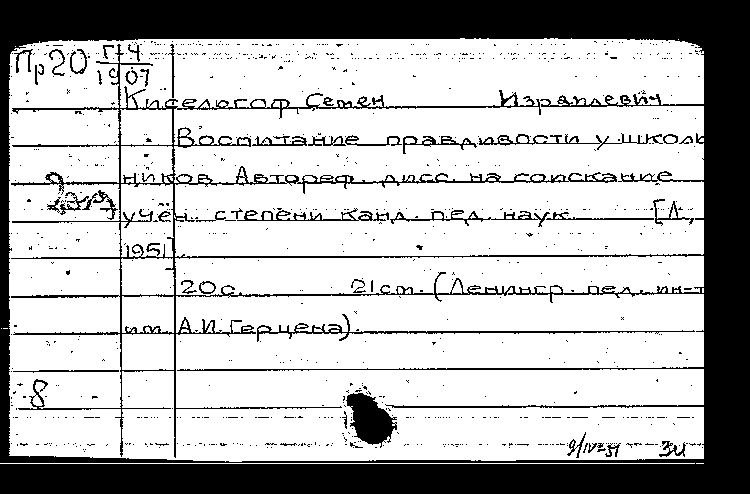 Пр20 Г-4
1907
Кисельгоф, Семен Израилевич
Воспитание правдивости у школь
ников. Автореф. дисс. на соискание
учён. степени канд. пед. наук. [Л.,
1951].
20 с. 21 см. (Ленингр. пед. ин-т
им. А.И. Герцена).
8
9/IV-51 ЗИ